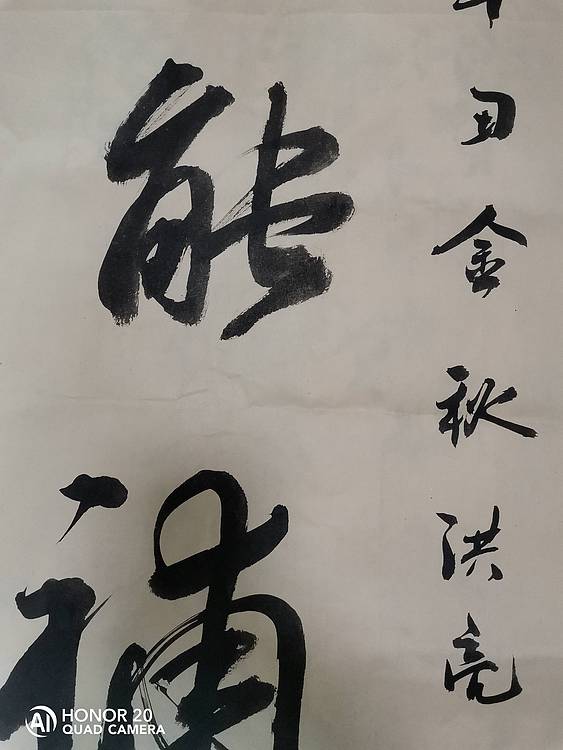 能補
辛丑金秋洪亮
HONOR 20
QUAD CAMERA
AI